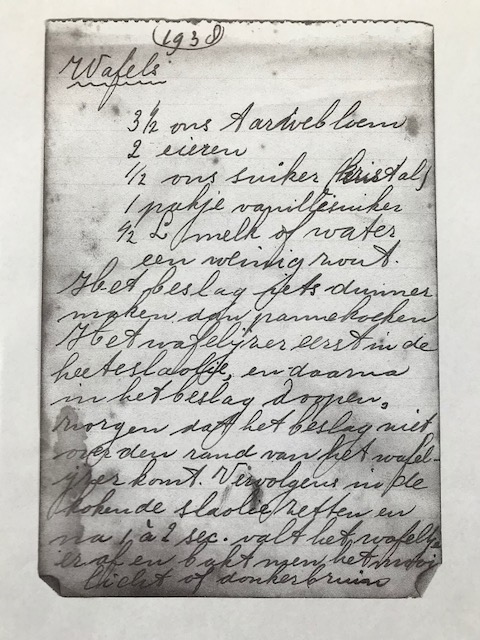 (1938)
Wafels
3 1/2 ons tarwebloem
2 eieren
1/2 ons suiker (kristal)
1 pakje vanillesuiker
1/2 L melk of water
een weinig zout.
Het beslag iets dunner
maken dan pannekoeken
Het wafelijzer eerst in de
heete slaolie, en daarna
in het beslag doppen,
zorgen dat het beslag niet
over den rand van het wafel-
ijzer komt. Vervolgens in de
kokende slaolie zetten en
na 1 à 2 sec. valt het wafeltje
er af en bakt men het mooi
licht of donkerbruin